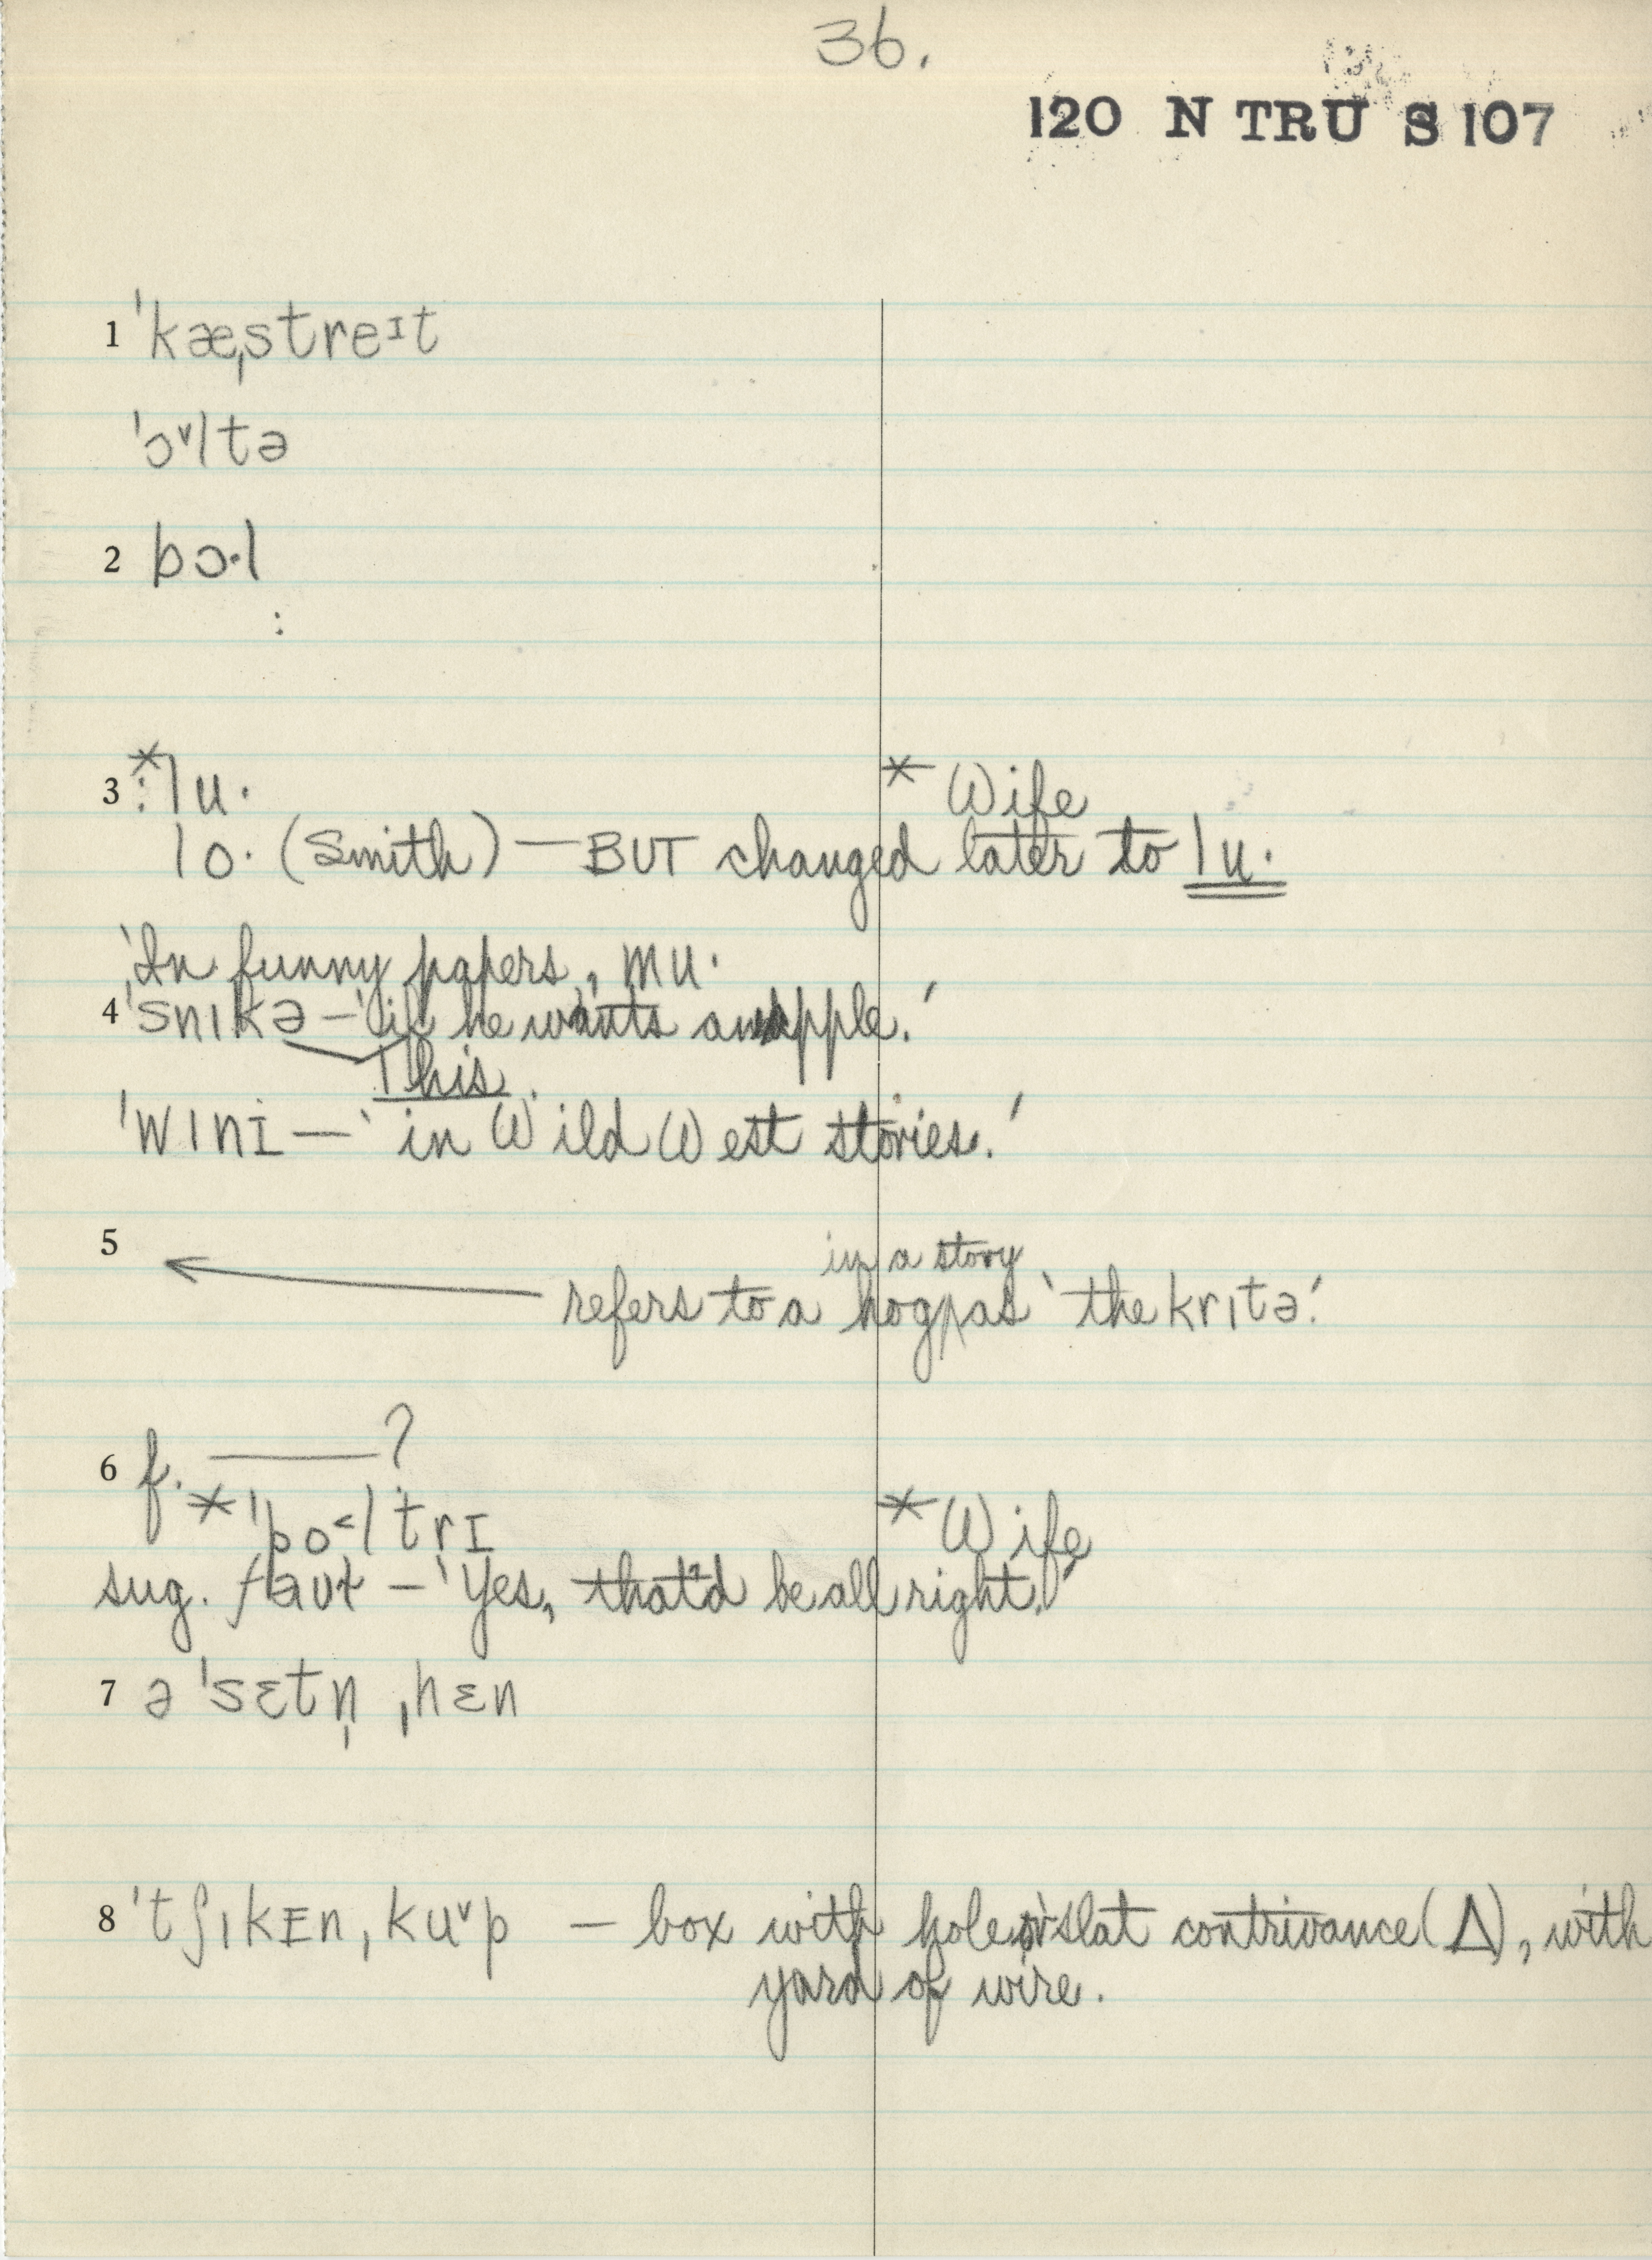 36.
120 N TRU S 107
1 ˈkæˌstreɪt
ˈɔˇltə
2 bɔ·l
:
3 *:lu·
* Wife
lo· (Smith) — BUT changed later to lu·
'In funny papers, mu·'
4 ˈsnɪkə — 'if he wants an apple.'
This.
ˈwɪnɪ — 'in Wild West stories.'
5
in a story
refers to a hog as 'the krɪtə.'
6 f. ——?
* ˈpo˂ltrɪ
* Wife
sug. faʊl — 'Yes, that'd be all right.'
7 ə ˈsɛtn̩ ˌhɛn
8 ˈtʃɪkɪn ˌkuˇp — box with hole or slat contrivance (Δ), with
yard of wire.